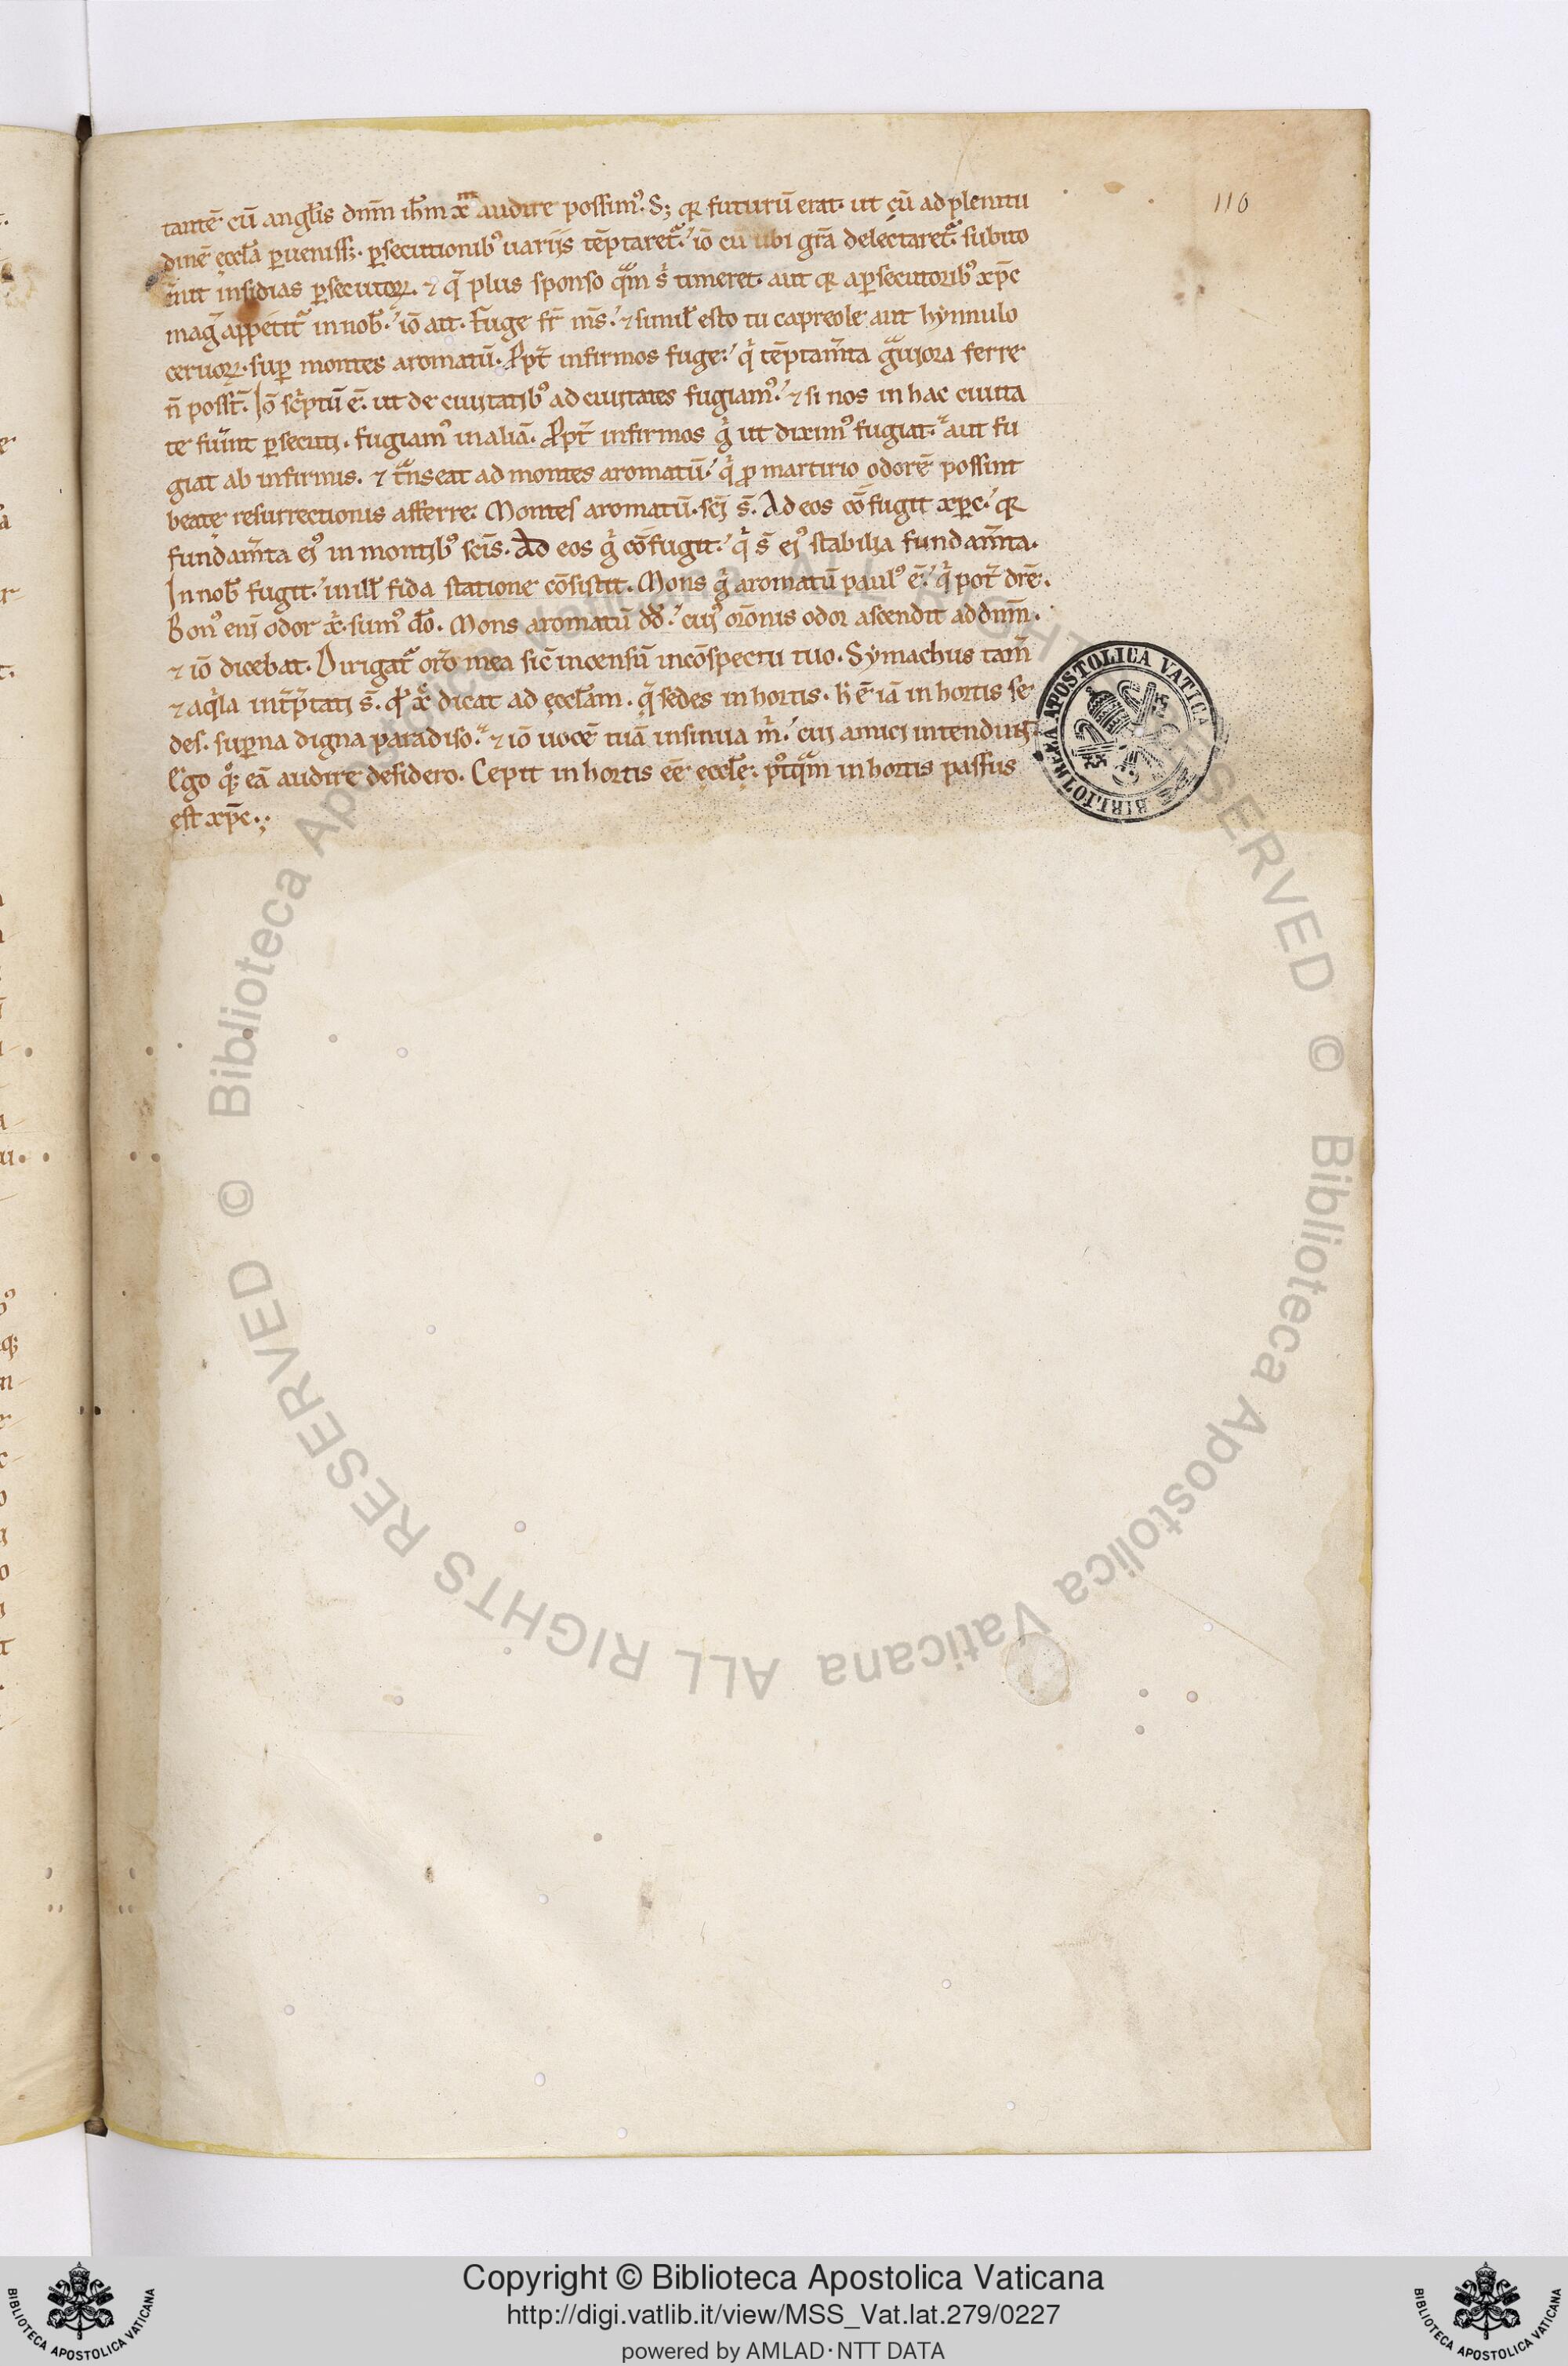 110
tantē cū angl̄is dnm̄ ihm̄ xm̄ audire possimꝰ. Sꝫ qꝛ futurū erat. ut cū ad plenitu
dinē ęccl̄a ꝑuenissꝫ. ꝑsecutionibꝰ uarijs tēptaret᷑.ʼ iō cū ubi grā delectaret᷑. subito
insidias ꝑsecutoꝝ. ⁊ q̄ plus sponso qᵃm sⁱ timeret. aut qꝛ a ꝑsecutoribꝰ xp̄c
mag̕ appetit᷑ in nob̄.ʼ iō ait. Fuge fr̄ ms̄.ʼ ⁊ simil̄ esto tu capreole aut hỳnnulo
ceruoꝝ. suꝑ montes aromatū. ꝓpt̕ infirmos fuge.ʼ qⁱ tēptam̄ta gᵃuiora ferre
n̄ poss̄t. Iō scⁱptū ē. ut de ciuitatibꝰ ad ciuitates fugiamꝰ.ʼ ⁊ si nos in hac ciuita
te fu̕int ꝑsecuti. fugiamꝰ in aliā. ꝓpt̕ infirmos gⁱ ut diximꝰ fugiat. aut fu
giat ab infirmis. ⁊ tᵃnseat ad montes aromatū.ʼ qⁱ ꝓ martirio odorē possint
beatę resurrectionis afferre. Montes aromatū. sc̄i s̄. Ad eos cōfugit xp̄c.ʼ qꝛ
fundam̄ta eiꝰ in montibꝰ sc̄is. Ad eos gⁱ cōfugit.ʼ qⁱ s̄ eiꝰ stabilia fundam̄ta.
In nob̄ fugit.ʼ in ill̄ fida statione cōsistit. Mons gⁱ aromatū paulꝰ ē.ʼ qⁱ pot̕ dr̄e.
Bonꝰ eni odor xⁱ. sumꝰ dō. Mons aromatū dd̄.ʼ cuiꝰ orōnis odor ascendit ad dnm̄.
⁊ iō dicebat. Dirigat᷑ orō mea sic̄ incensū in cōspectu tuo. Sỳmachus tam̄
⁊ aqⁱla int̕p̄tati s̄. qđ xc̄ dicat ad ęccl̄am. q̄ sedes in hortis. h̄ ē iā in hortis se
des. suꝑna digna paradiso. ⁊ iō uocē tuā insinua mⁱ.ʼ cui amici intendūt.
Ego qᵒqꝫ eā audire desidero. Cepit in hortis eē ęccl̄ę. pꝰtqᵃm in hortis passus
est xp̄c.
BIBLIOTHECA APOSTOLICA VATICANA
© Biblioteca Apostolica Vaticana ALL RIGHTS RESERVED © Biblioteca Apostolica Vaticana ALL RIGHTS RESERVED
Copyright © Biblioteca Apostolica Vaticana
http://digi.vatlib.it/view/MSS_Vat.lat.279/0227
powered by AMLAD·NTT DATA
BIBLIOTECA APOSTOLICA VATICANA
BIBLIOTECA APOSTOLICA VATICANA